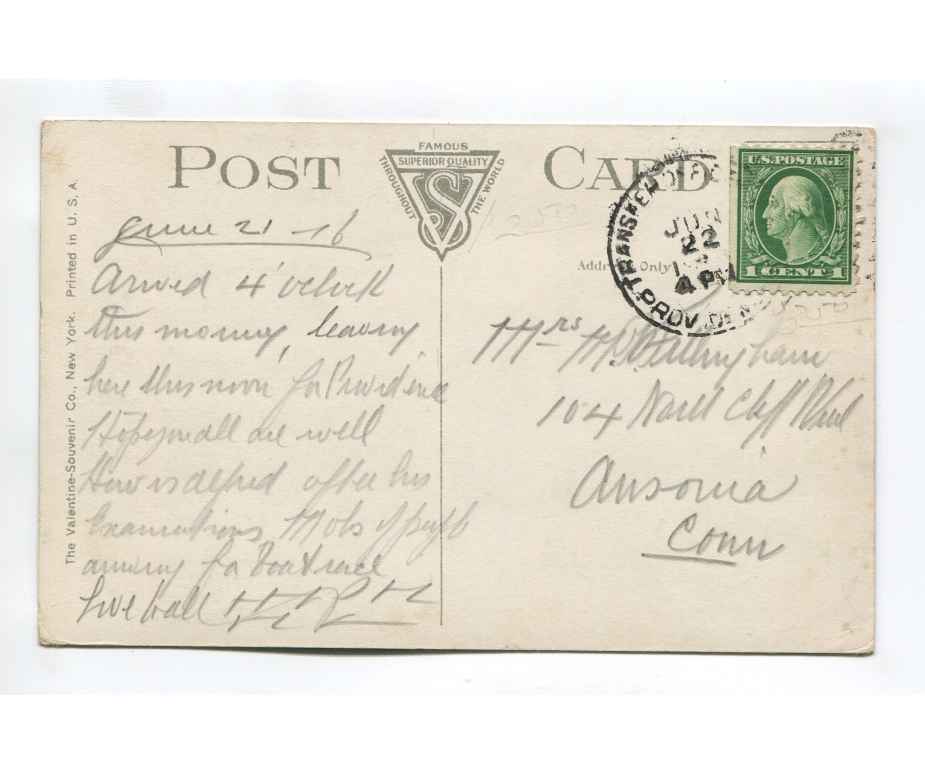 POST CARD
FAMOUS
SUPERIOR QUALITY
THROUGHOUT THE WORLD
VS
The Valentine-Souvenir Co., New York. Printed in U. S. A.
Address Only
U.S. POSTAGE
1 CENT 1
TRANSFER
JUN
22
4 PM
PROVIDEN
June 21 - 16
Arived 4 o'clock
this morning, leaving
here this noon for Providence
Hope you all are well
How is after his
Examinations Mobs of people
for Boat race
Love to all
Mrs
104 North Cliff
Ansonia
Conn